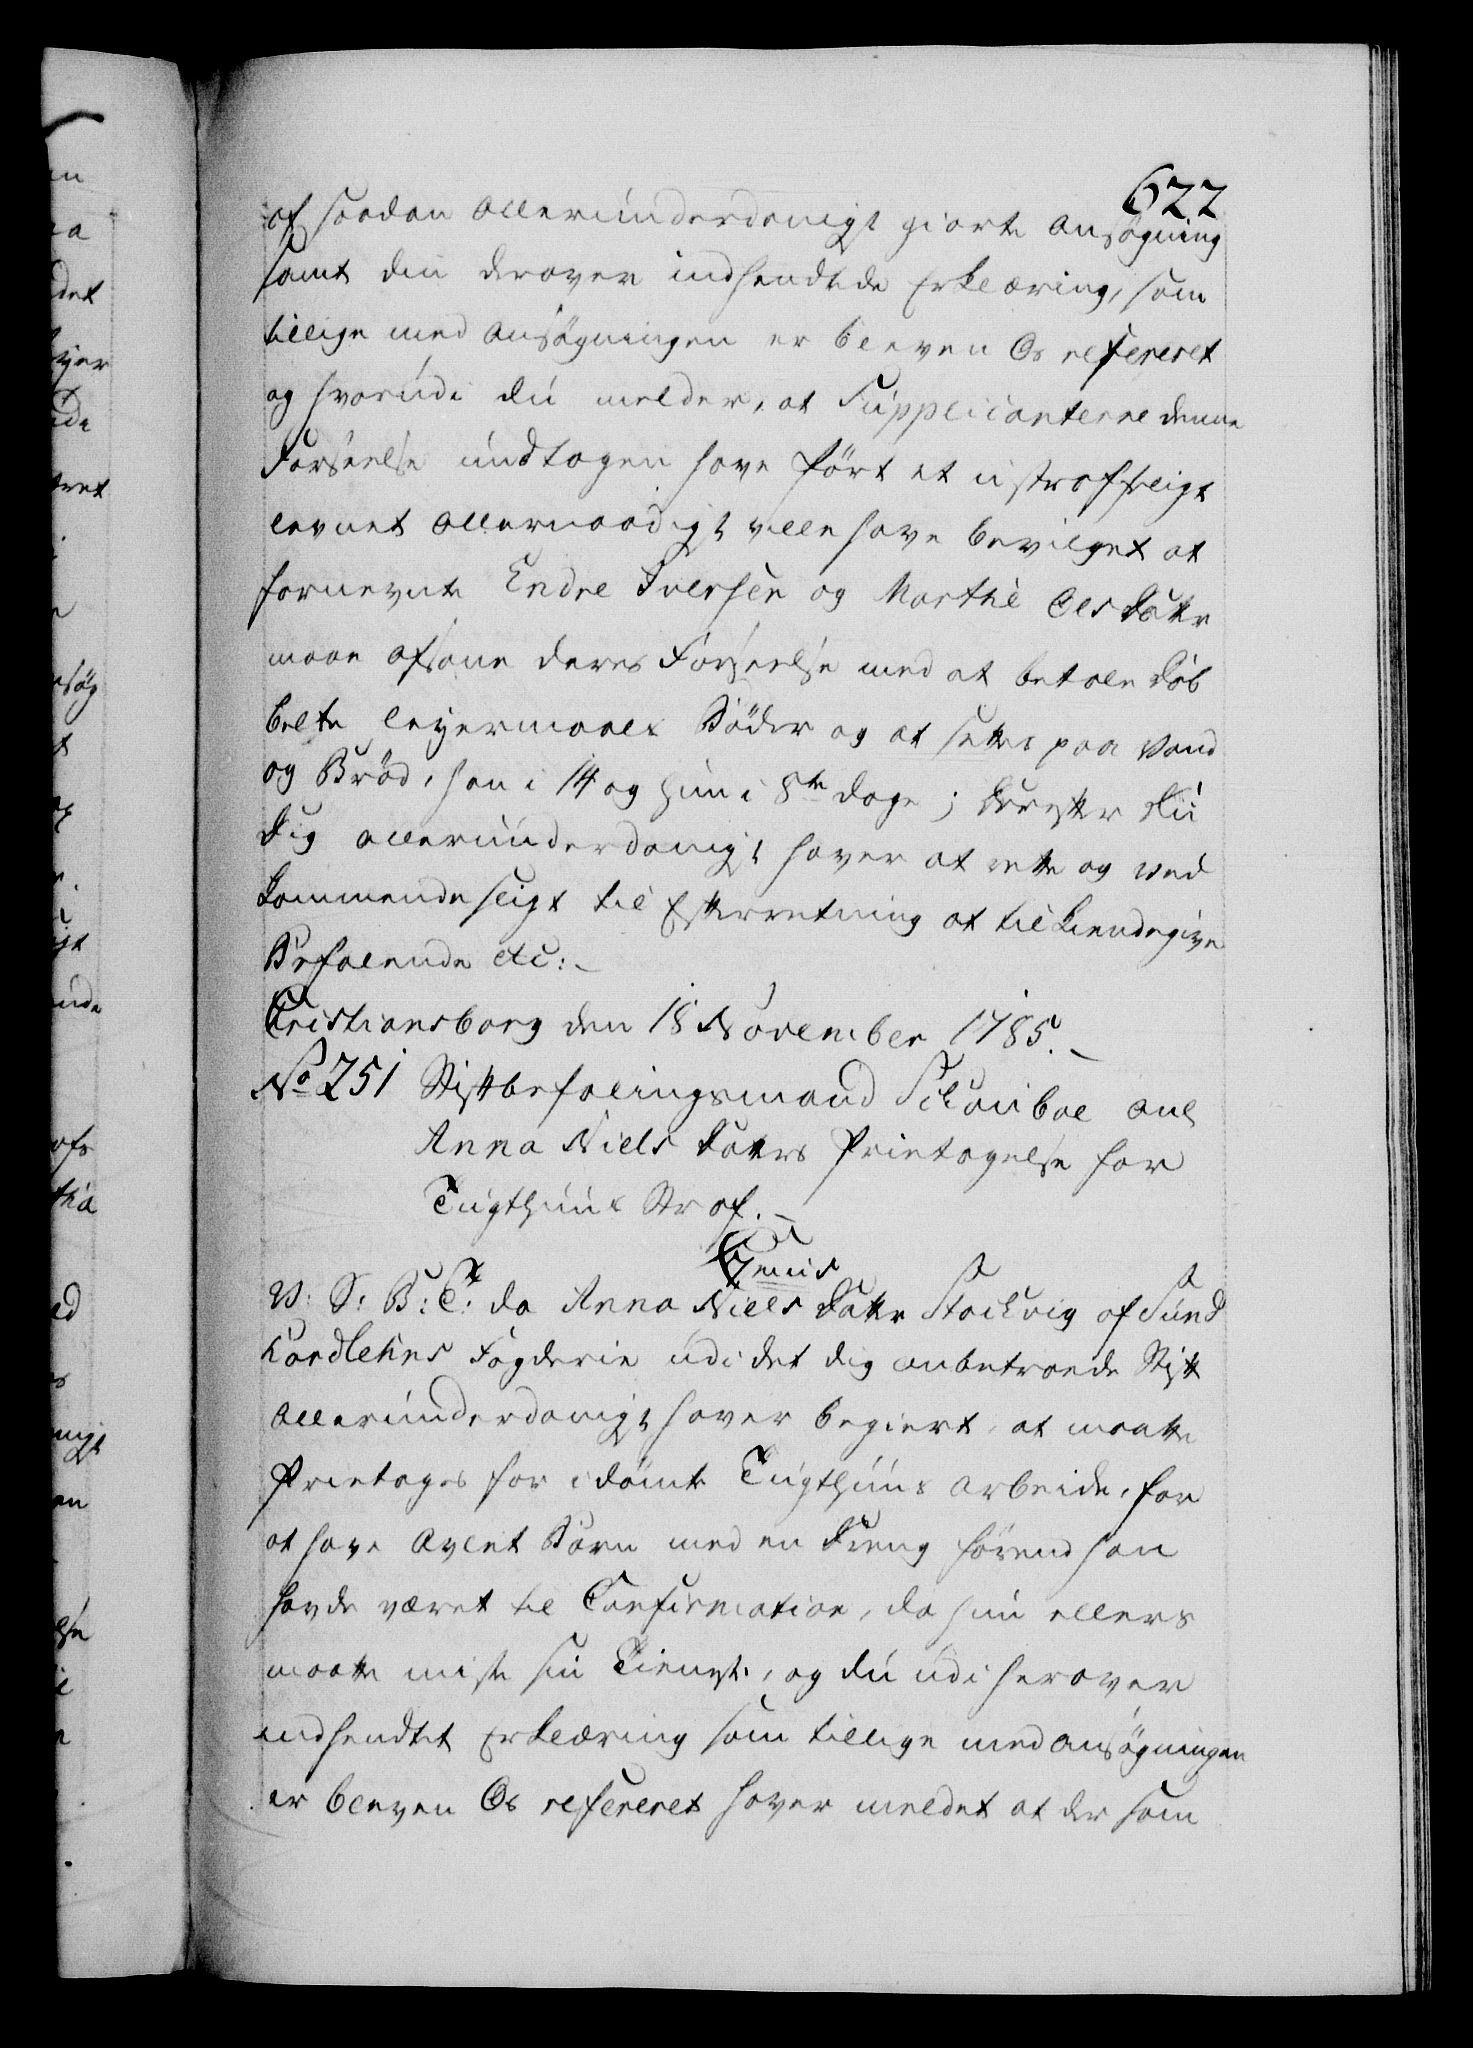 622
af saadan allerunderdanigst giorte Ansøgning
samt din derover indsendte Erklæring, som
tillige med Ansøgningen er bleven Os refereret
og hvorudi du melder, at Supplicanterne denne
Forseelse undtagen have ført et ustraffeligt
levnet allernaadigst ville have bevilget at
fornevnte Endre Iversen og Marthe Olsdatter
maae afsone deres Forseelse med at betale dob
belte leyermaals Bøder og at settes paa Vand
og Brød, han i 14 og hun i 8te dage; Derefter du
dig allerunderdanigst haver at rette og ved
kommende sligt til Efterretning at tilkiendegive
Befalende etc:
Cristiansborg den 18 November 1785.
No 251 Stiftbefalingsmand Schouboe anl
Anna Niels datters Frietagelse for
Tugthuus Straf.
Genis
V: S: B: T: da Anna Niels datter Stockvig af Sund
hordlehns Fogderie udi det dig anbetroede Stift
allerunderdanigst haver begiert, at maatte
Frietages for idømte Tugthuus Arbeide, for
at have avlet Barn med en Dreng førend han
havde været til Confirmation, da hun ellers
maatte miste sin Tieneste, og du udi herover
indsendtet Erklæring som tillige med Ansøgningen
er bleven Os refereret haver meldet at der som